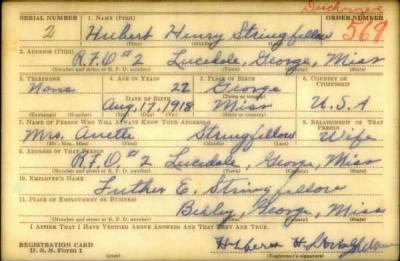 Discharged
SERIAL NUMBER 1. NAME (Print) ORDER NUMBER
2 Hubert Henry Stringfellow 569
(First) (Middle) (Last)
2. ADDRESS (Print)
R.F.D #2 Lucedale, George, Miss
(Number and street or R. F. D. number) (Town) (County) (State)
3. TELEPHONE 4. AGE IN YEARS 5. PLACE OF BIRTH 6. COUNTRY OF CITIZENSHIP
None 22 George
DATE OF BIRTH
Aug. 17, 1918 Miss U.S.A
(Exchange) (Number) (Mo.) (Day) (Yr.) (State or country)
7. NAME OF PERSON WHO WILL ALWAYS KNOW YOUR ADDRESS 8. RELATIONSHIP OF THAT PERSON
Mrs. Anette Stringfellow Wife
(Mr., Mrs., Miss) (First) (Middle) (Last)
9. ADDRESS OF THAT PERSON
R.F.D #2 Lucedale, George, Miss
(Number and street or R. F. D. number) (Town) (County) (State)
10. EMPLOYER'S NAME
Luther E. Stringfellow
11. PLACE OF EMPLOYMENT OR BUSINESS
Bexley, George, Miss
(Number and street or R. F. D. number) (Town) (County) (State)
I AFFIRM THAT I HAVE VERIFIED ABOVE ANSWERS AND THAT THEY ARE TRUE.
REGISTRATION CARD
D. S. S. Form 1 (Registrant's signature)